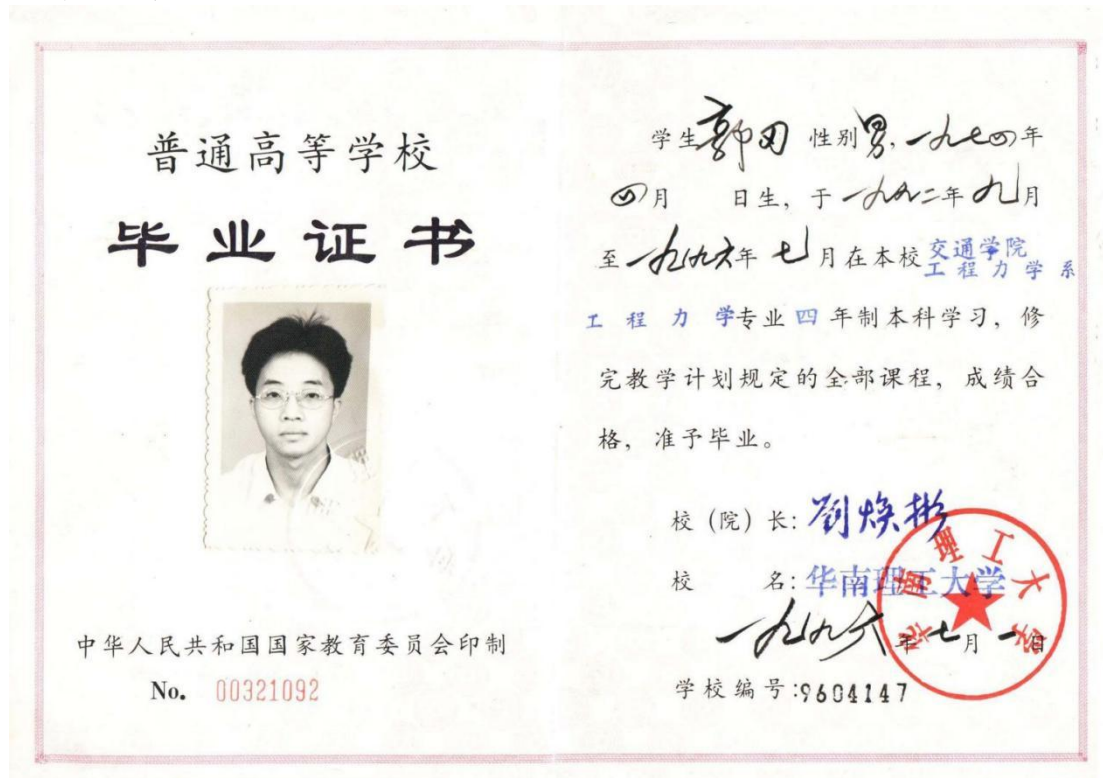 普通高等学校
毕业证书
中华人民共和国国家教育委员会印制
No. 00321092
学生 郭田 性别 男, 一九七四年
四月 日生, 于一九九二年九月
至一九九六年七月在本校 交通学院
工程力学系
工程力学专业四年制本科学习, 修
完教学计划规定的全部课程, 成绩合
格, 准予毕业。
校(院)长: 刘焕彬
校 名: 华南理工大学
华南理工大学
一九九六年七月一日
学校编号:9604147